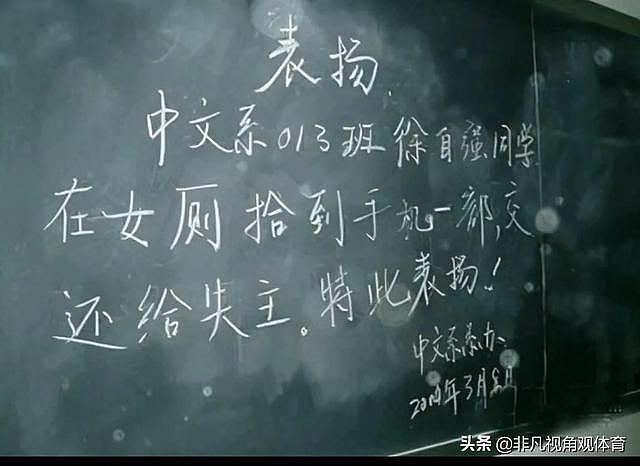 表扬
中文系013班徐自强同学
在女厕拾到手机一部,交
还给失主。特此表扬!
中文系系办
年3月
头条@非凡视角观体育